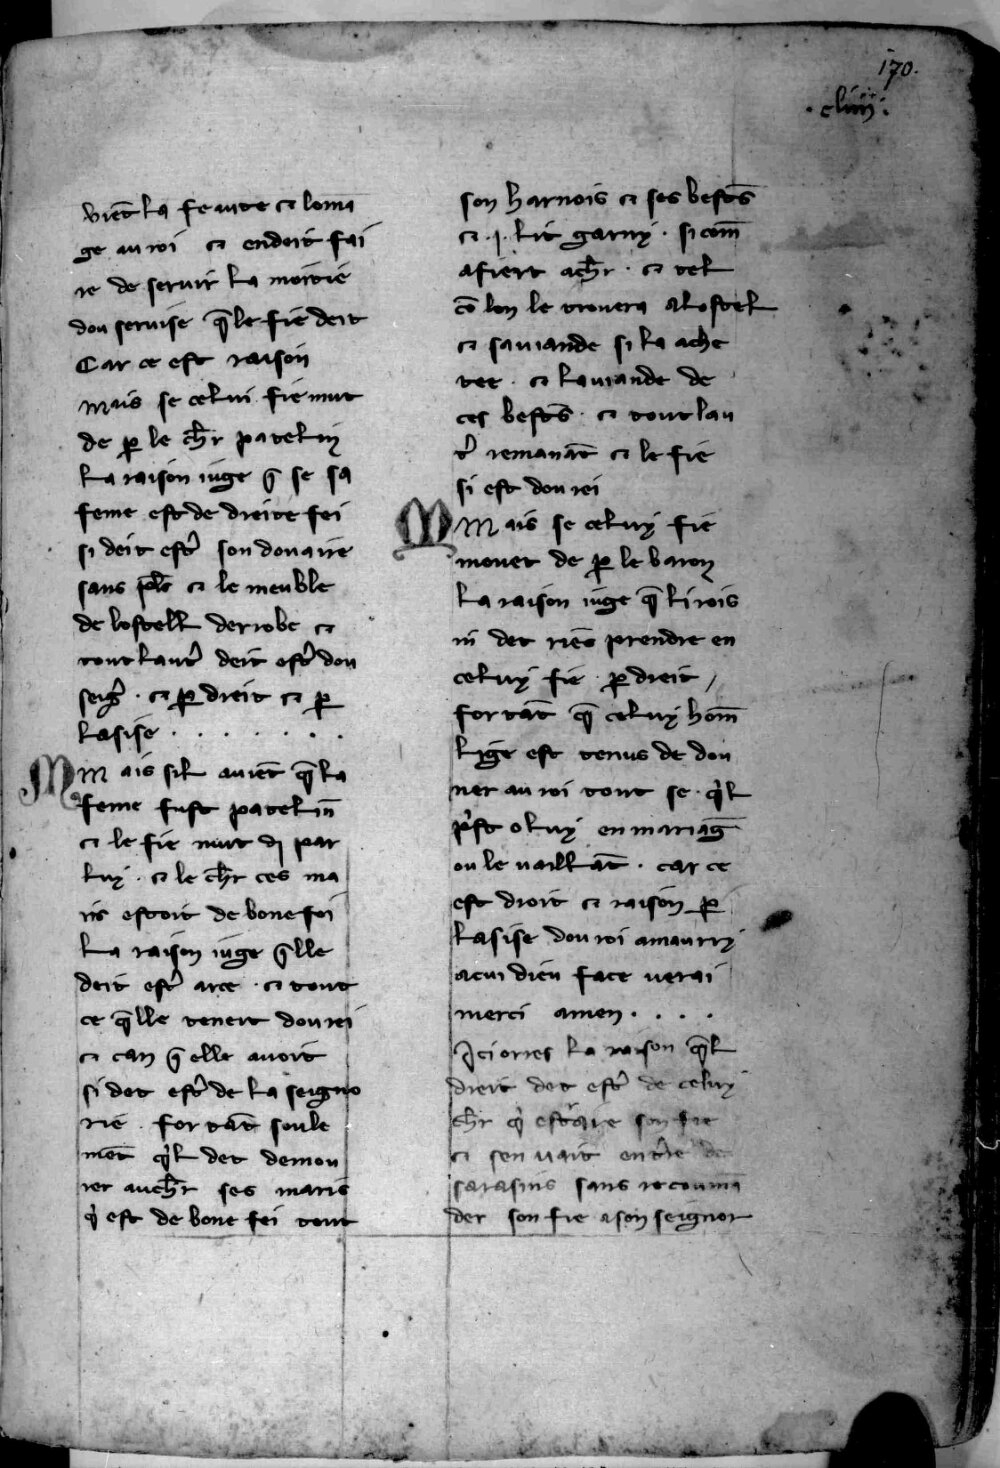 170.
.cliiii.
vient la feaute et loma
ge au roi et endeit fai
re de servir la moitie
dou servise que le fie deit
Car ce est raison
Mais se celui fie mut
de par le chr patelin
la raison iuge que se sa
feme est de dreite fei
si deit estre son douaire
sans plus et le meuble
de lostell derrobe et
tout lautre deit estre dou
seigr · et par dreit et par
lasise · · · · · ·
Mais sil auient que la
feme fust pateline
et le fie mut de par
luy · et le chr ces ma
ris estoit de bone foi
la raison iuge quelle
deit estre arce · et tout
ce quelle teneit dou rei
et can que elle auoit
si det estre de la seigno
rie · for tant soule
ment quil det demou
rer au chr ses maris
qui est de bone fei tout
son harnois et ses bestes
et · i · lit garny · si com
afiert a chr · et tel
com lon le trouera a lostel
et sa uiande si la ache
tee · et la uiande de
ces bestes · et tout lau
tre remanant et le fie
si est dou rei
Mais se celuy fie
mouet de par le baron
la raison iuge que li rois
ni det riens prendre en
celuy fie par dreit /
for tant que celuy home
lige est tenus de don
ner au roi tout se quil
prist o luy en mariage
ou le uaillant · car ce
est droit et raison par
lasise dou roi amaurry
a cui dieu face uerai
merci amen · · · ·
Ici orres la raison quel
dreit det estre de celuy
chr qui
et sen uait
sarasins sans recouma
der son fie a son seignor